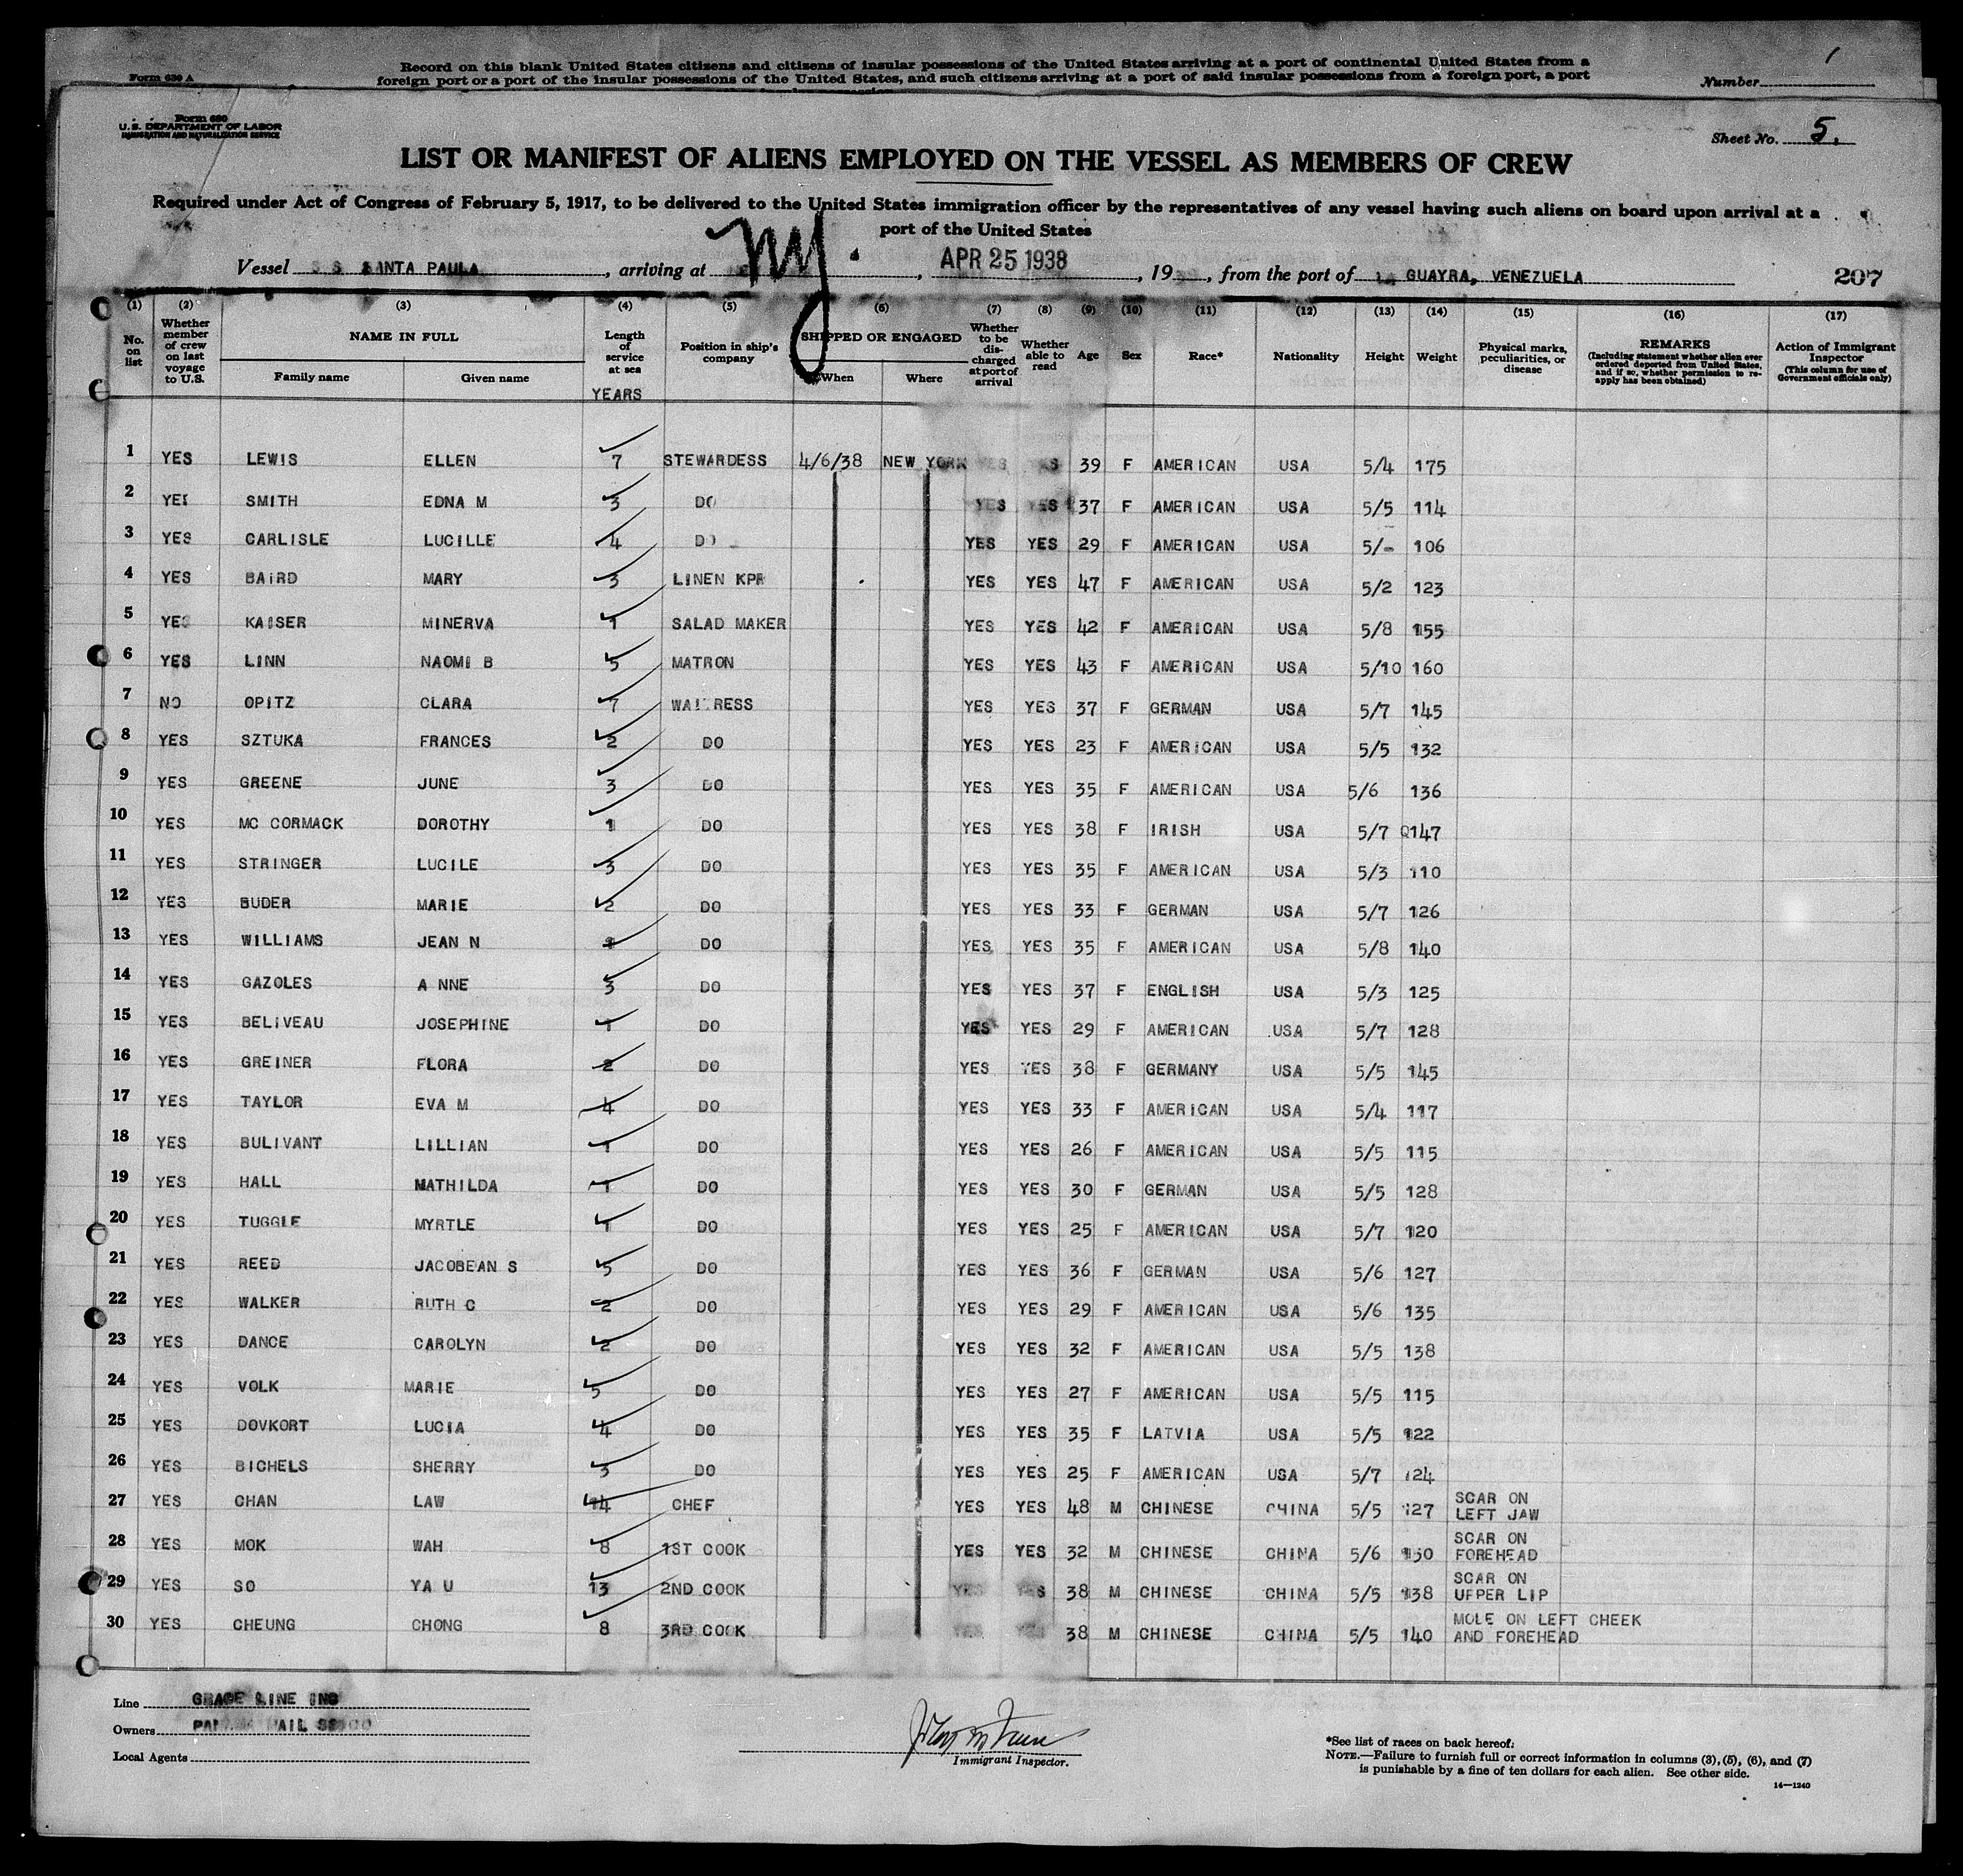 Form 630 A
Record on this blank United States citizens and citizens of insular possessions of the United States arriving at a port of continental United States from a
foreign port or a port of the insular possessions of the United States, and such citizens arriving at a port of said insular possessions from a foreign port, a port
Number
Form 680
U. S. DEPARTMENT OF LABOR
IMMIGRATION AND NATURALIZATION SERVICE
Sheet No. 5.
LIST OR MANIFEST OF ALIENS EMPLOYED ON THE VESSEL AS MEMBERS OF CREW
Required under Act of Congress of February 5, 1917, to be delivered to the United States immigration officer by the representatives of any vessel having such aliens on board upon arrival at a
port of the United States
Vessel S S SANTA PAULA, arriving at NY, APR 25 1938, 19, from the port of LA GUAYRA, VENEZUELA 207
(1) (2) (3) (4) (5) (6) (7) (8) (9) (10) (11) (12) (13) (14) (15) (16) (17)
No. on list Whether member of crew on last voyage to U.S. NAME IN FULL Family name Given name Length of service at sea YEARS Position in ship's company SHIPPED OR ENGAGED When Where Whether to be discharged at port of arrival Whether able to read Age Sex Race* Nationality Height Weight Physical marks, peculiarities, or disease REMARKS (Including statement whether alien ever ordered deported from United States, and if so, whether permission to reapply has been obtained) Action of Immigrant Inspector (This column for use of Government officials only)
1 YES LEWIS ELLEN 7 STEWARDESS 4/6/38 NEW YORK YES YES 39 F AMERICAN USA 5/4 175
2 YES SMITH EDNA M 3 DO YES YES 37 F AMERICAN USA 5/5 114
3 YES CARLISLE LUCILLE 4 DO YES YES 29 F AMERICAN USA 5/- 106
4 YES BAIRD MARY 3 LINEN KPR YES YES 47 F AMERICAN USA 5/2 123
5 YES KAISER MINERVA 1 SALAD MAKER YES YES 42 F AMERICAN USA 5/8 155
6 YES LINN NAOMI B 5 MATRON YES YES 43 F AMERICAN USA 5/10 160
7 NO OPITZ CLARA 7 WAITRESS YES YES 37 F GERMAN USA 5/7 145
8 YES SZTUKA FRANCES 2 DO YES YES 23 F AMERICAN USA 5/5 132
9 YES GREENE JUNE 3 DO YES YES 35 F AMERICAN USA 5/6 136
10 YES MC CORMACK DOROTHY 1 DO YES YES 38 F IRISH USA 5/7 147
11 YES STRINGER LUCILE 3 DO YES YES 35 F AMERICAN USA 5/3 110
12 YES BUDER MARIE 2 DO YES YES 33 F GERMAN USA 5/7 126
13 YES WILLIAMS JEAN N DO YES YES 35 F AMERICAN USA 5/8 140
14 YES GAZOLES A NNE 3 DO YES YES 37 F ENGLISH USA 5/3 125
15 YES BELIVEAU JOSEPHINE 1 DO YES YES 29 F AMERICAN USA 5/7 128
16 YES GREINER FLORA 2 DO YES YES 38 F GERMANY USA 5/5 145
17 YES TAYLOR EVA M 4 DO YES YES 33 F AMERICAN USA 5/4 117
18 YES BULIVANT LILLIAN 1 DO YES YES 26 F AMERICAN USA 5/5 115
19 YES HALL MATHILDA 1 DO YES YES 30 F GERMAN USA 5/5 128
20 YES TUGGLE MYRTLE 1 DO YES YES 25 F AMERICAN USA 5/7 120
21 YES REED JACOBEAN S 5 DO YES YES 36 F GERMAN USA 5/6 127
22 YES WALKER RUTH C 2 DO YES YES 29 F AMERICAN USA 5/6 135
23 YES DANCE CAROLYN 2 DO YES YES 32 F AMERICAN USA 5/5 138
24 YES VOLK MARIE 5 DO YES YES 27 F AMERICAN USA 5/5 115
25 YES DOVKORT LUCIA 4 DO YES YES 35 F LATVIA USA 5/5 122
26 YES BICHELS SHERRY 3 DO YES YES 25 F AMERICAN USA 5/7 124
27 YES CHAN LAW 14 CHEF YES YES 48 M CHINESE CHINA 5/5 127 SCAR ON LEFT JAW
28 YES MOK WAH 8 1ST COOK YES YES 32 M CHINESE CHINA 5/6 130 SCAR ON FOREHEAD
29 YES SO YA U 13 2ND COOK YES YES 38 M CHINESE CHINA 5/5 138 SCAR ON UPPER LIP
30 YES CHEUNG CHONG 8 3RD COOK YES YES 38 M CHINESE CHINA 5/5 140 MOLE ON LEFT CHEEK AND FOREHEAD
Line GRACE LINE INC
Owners PANAMA MAIL SS CO
Local Agents
Immigrant Inspector.
*See list of races on back hereof.
NOTE.—Failure to furnish full or correct information in columns (3), (5), (6), and (7)
is punishable by a fine of ten dollars for each alien. See other side.
14—1240